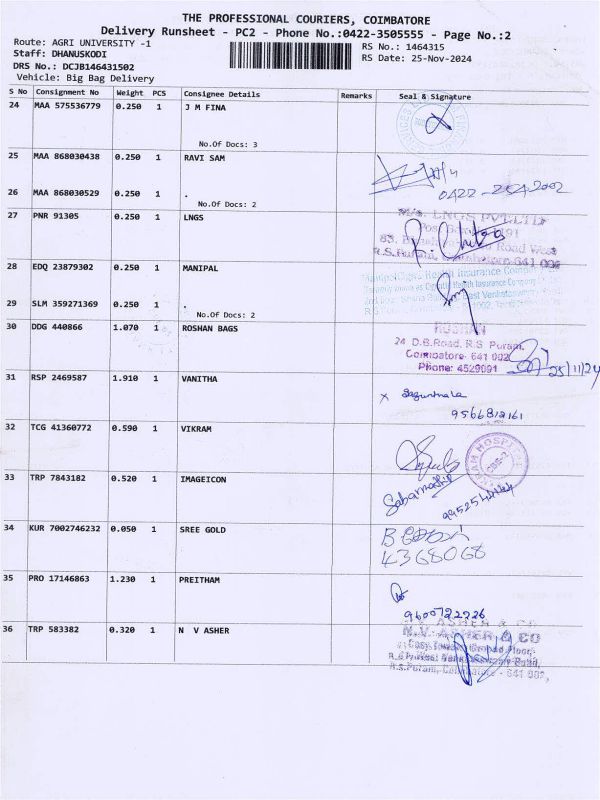 THE PROFESSIONAL COURIERS, COIMBATORE
Delivery Runsheet - PC2 - Phone No.:0422-3505555 - Page No.:2
Route: AGRI UNIVERSITY -1
RS No.: 1464315
Staff: DHANUSKODI
RS Date: 25-Nov-2024
DRS No.: DCJB146431502
Vehicle: Big Bag Delivery
S No Consignment No Weight PCS Consignee Details Remarks Seal & Signature
24 MAA 575536779 0.250 1 J M FINA
No.Of Docs: 3
25 MAA 868030438 0.250 1 RAVI SAM
26 MAA 868030529 0.250 1 .
No.Of Docs: 2
27 PNR 91305 0.250 1 LNGS
M/s. LNGS PVT LTD
Road West
R.S.Puram, Coimbatore-641 002
28 EDQ 23879302 0.250 1 MANIPAL
Health Insurance
29 SLM 359271369 0.250 1 .
No.Of Docs: 2
30 DDG 440866 1.070 1 ROSHAN BAGS
ROSHAN
24 D.B.Road, R.S Puram,
Coimbatore- 641 002
Phone: 4529091
25/11/24
31 RSP 2469587 1.910 1 VANITHA
x Sagunthala
9566812161
32 TCG 41360772 0.590 1 VIKRAM
33 TRP 7843182 0.520 1 IMAGEICON
34 KUR 7002746232 0.050 1 SREE GOLD
4368068
35 PRO 17146863 1.230 1 PREITHAM
9600722226
36 TRP 583382 0.320 1 N V ASHER
N.V. ASHER & CO
R.S.Puram, Coimbatore - 641 002,